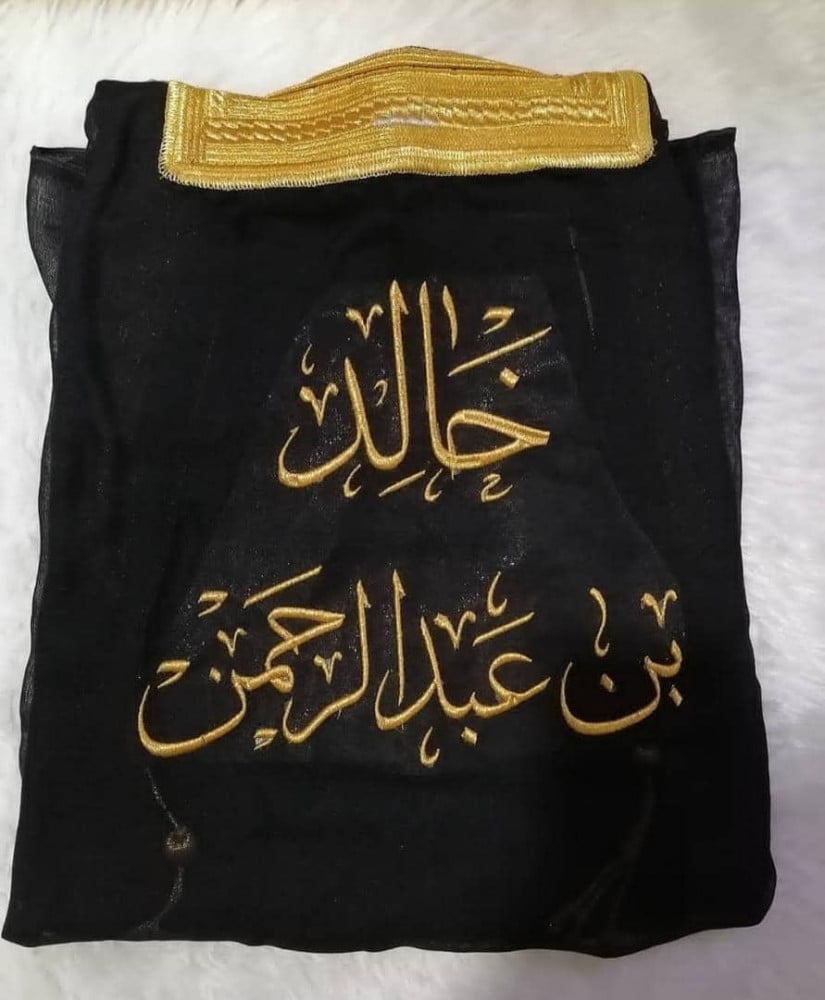 خالد
بن عبدالرحمن